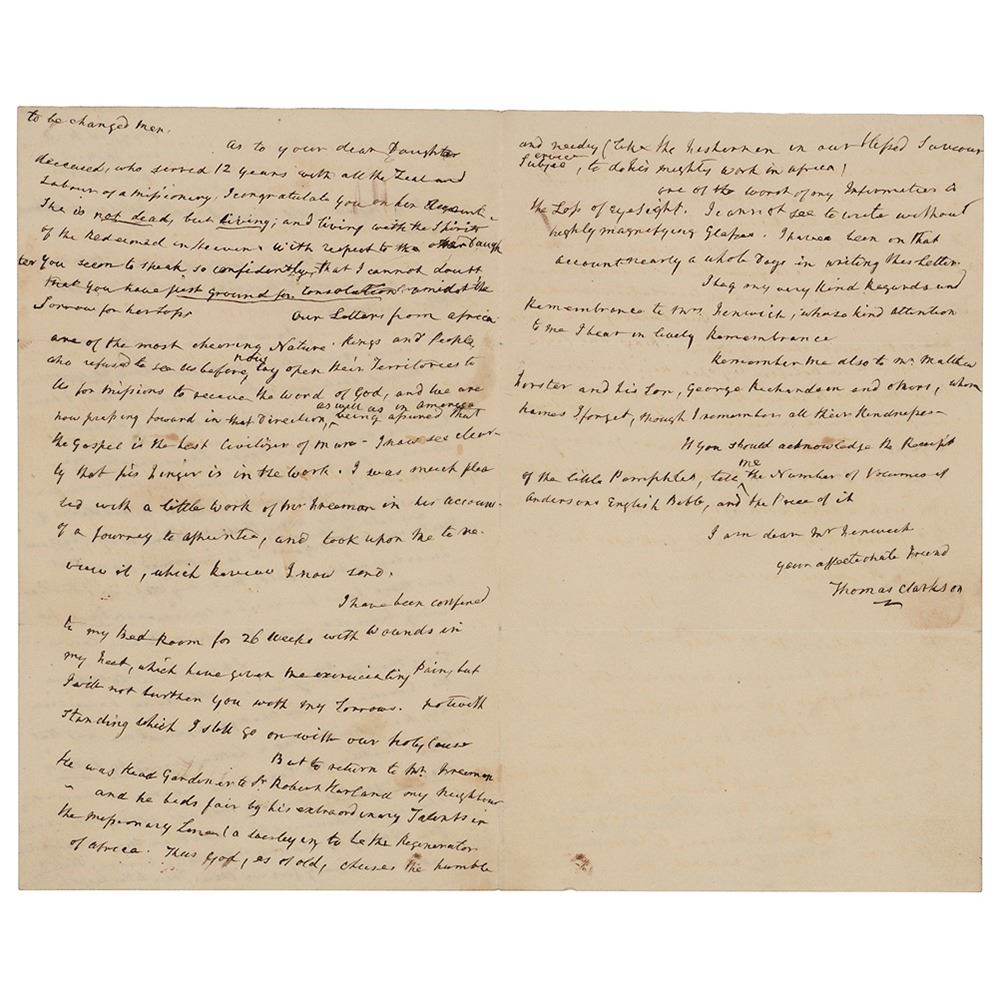 to be changed men.
As to your dear Daughter
deceased, who served 12 years with all the Zeal and
Labour of a missionary, I congratulate you on her Account.
She is not dead, but living; and living with the Spirits
of the Redeemed in Heaven. With respect to the other Daugh
ter you seem to speak so confidently, that I cannot doubt
that you have just ground for consolation amidst the
Sorrow for her Loss
Our Letters from Africa
are of the most cheering Nature. Kings and People,
who refused to see us before, now lay open their Territories to
us for missions to receive the Word of God, and we are
now pressing foward in that Direction, as well as in America being assured that
the Gospel is the best Civilizer of man - I now see clear-
ly that his Finger is in the Work. I was much plea
sed with a little Work of Mr Freeman in his account
of a Journey to Ashantee, and took upon me to re-
view it, which Review I now send.
I have been confined
to my Bed Room for 26 weeks with Wounds in
my Feet, which have given me excruciating Pain, but
I will not burthen you with my Sorrows. Notwith
standing which I still go on with our Holy Cause
But to return to Mr. Freeman
He was Head Gardiner to Sr. Robert Harland my Neighbour
and he bids fair by his extraordinary Talents in
the missionary Line (a Wesleyan) to be the Regenerator
of Africa. Thus God, as of old, chuses the humble
and needy (like the Fishermen in our blessed Saviour
Service, to do his mighty work in Africa!
One of the worst of my Infirmities is
the Loss of eyesight. I cannot see to write without
highly magnifying Glasses. I have been on that
account nearly a whole Days in writing this Letter.
I beg my very kind Regards and
Remembrance to Mrs Fenwick, whose kind attention
to me I bear in lively Remembrance
Remember me also to Mr. Matthew
Forster and his Son, George Richardson and others, whose
names I forget, though I remember all their kindness -
If you should acknowledge the Receipt
of the little Pamphlet, tell me the Number of Volumes of
Andersons English Bible, and the Price of it
I am dear Mr Fenwick
your affectionate Friend
Thomas Clarkson